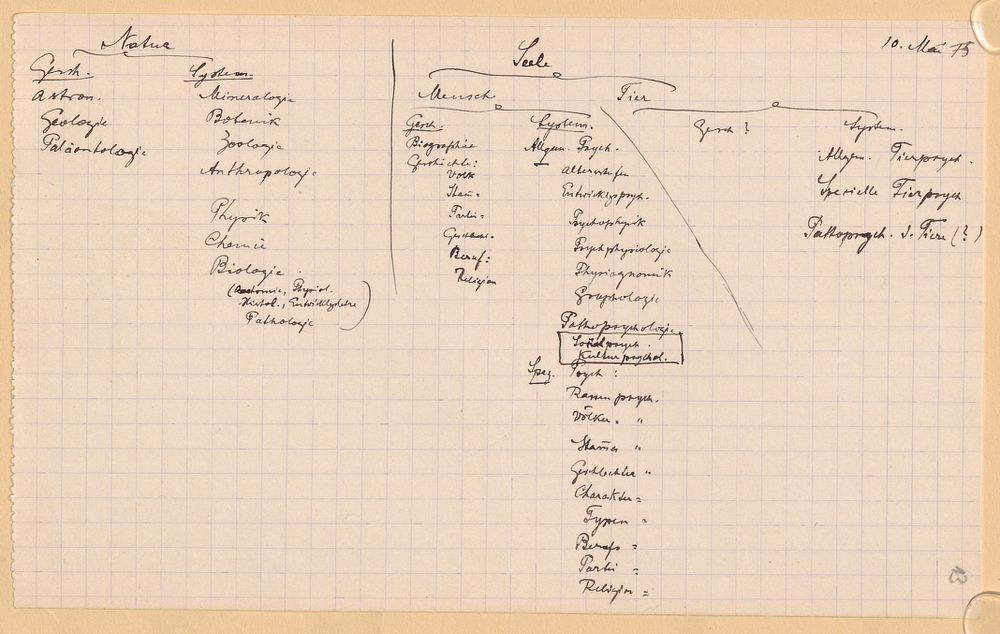 10. Mai 75
Natur
Gesch.
Astron.
Geologie
Paläontologie
System.
Mineralogie
Botanik
Zoologie
Anthropologie
Physik
Chemie
Biologie
(Anatomie, Physiol.
Histol., Entwicklgslehre
Pathologie)
Seele
Mensch
Gesch.
Biographie
Geschichte:
Volk
Stam̄=
Partei=
Geschlecht.
Beruf:
Religion
System.
Allgem. Psych.
Altersstufen
Entwicklgspsych.
Psychophysik
Psychophysiologie
Physiognomik
Graphologie
Pathopsychologie
Sozialpsych.
Kulturpsychol.
Spez. Psych:
Rassenpsych.
Völker. "
Stam̄es "
Geschlechter "
Charakter=
Typen =
Berufs =
Partei =
Religion =
Tier
Gesch?
System.
Allgem. Tierpsych.
Spezielle Tierpsych
Pathopsych. d. Tiere (?)